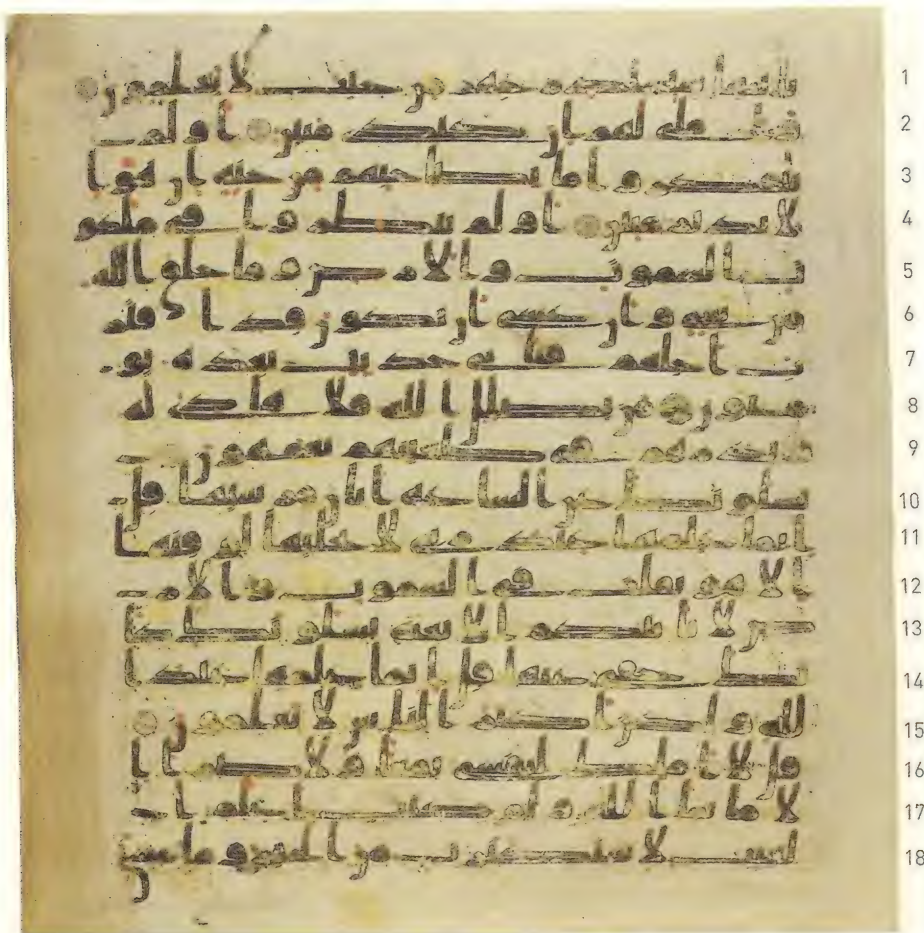 بايتنا سنستدرجهم من حيث لا يعلمون 1
واملي لهم ان كيدي متين اولم 2
يتفكروا ما بصاحبهم من جنة ان هو ا 3
لا نذير مبين اولم ينظروا في ملكو 4
ت السموت والارض وما خلق الله 5
من شيء وان عسى ان يكون قد اقتر 6
ب اجلهم فباي حديث بعده يو 7
منون من يضلل الله فلا هادي له 8
ويذرهم في طغينهم يعمهون 9
يسلونك عن الساعة ايان مرسيها قل 10
انما علمها عند ربي لا يجليها لوقتها 11
الا هو ثقلت في السموت والار 12
ض لا تاتيكم الا بغتة يسلونك كا 13
نك حفي عنها قل انما علمها عند ا 14
لله ولكن اكثر الناس لا يعلمون 15
قل لا املك لنفسي نفعا ولا ضرا ا 16
لا ما شا الله ولو كنت اعلم ا 17
لغيب لاستكثرت من الخير وما مسني 18